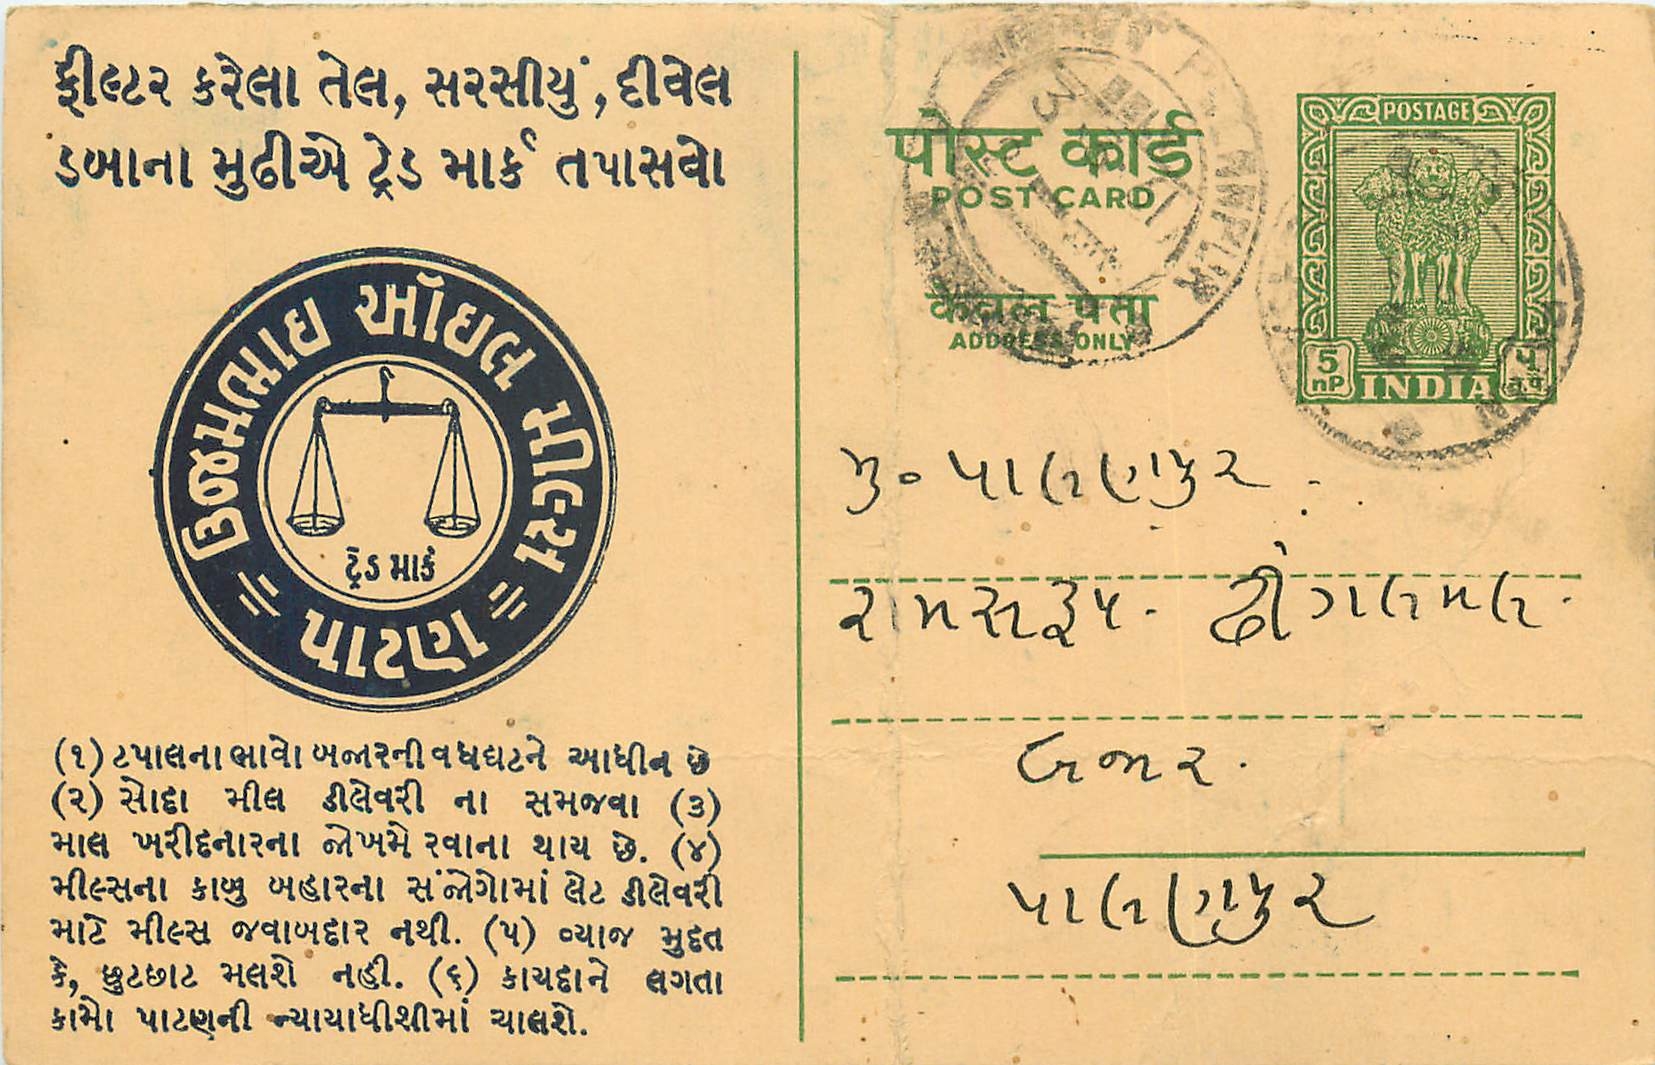 ફીલ્ટર કરેલા તેલ, સરસીયું, દીવેલ
ડબાના મુઢીએ ટ્રેડ માર્ક તપાસવો
ઉજમભાઇ ઑઇલ મીલ્સ
પાટણ
ટ્રેડ માર્ક
(૧) ટપાલના ભાવો બજારની વધઘટને આધીન છે
(૨) સોદા મીલ ડીલેવરી ના સમજવા (૩)
માલ ખરીદનારના જોખમે રવાના થાય છે. (૪)
મીલ્સના કાબુ બહારના સંજોગોમાં લેટ ડીલેવરી
માટે મીલ્સ જવાબદાર નથી. (૫) વ્યાજ મુદત
કે, છુટછાટ મલશે નહી. (૬) કાયદાને લગતા
કામો પાટણની ન્યાયાધીશીમાં ચાલશે.
पोस्ट कार्ड
POST CARD
केवल पता
ADDRESS ONLY
POSTAGE
5 nP
५ न.प.
INDIA
મુ૦ પાલણપુર
રામસરૂપ. ઢીંગલમલ.
બજાર.
પાલણપુર